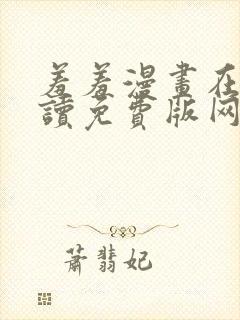 羞羞漫畫在
讀免費版网
蕭翡妃